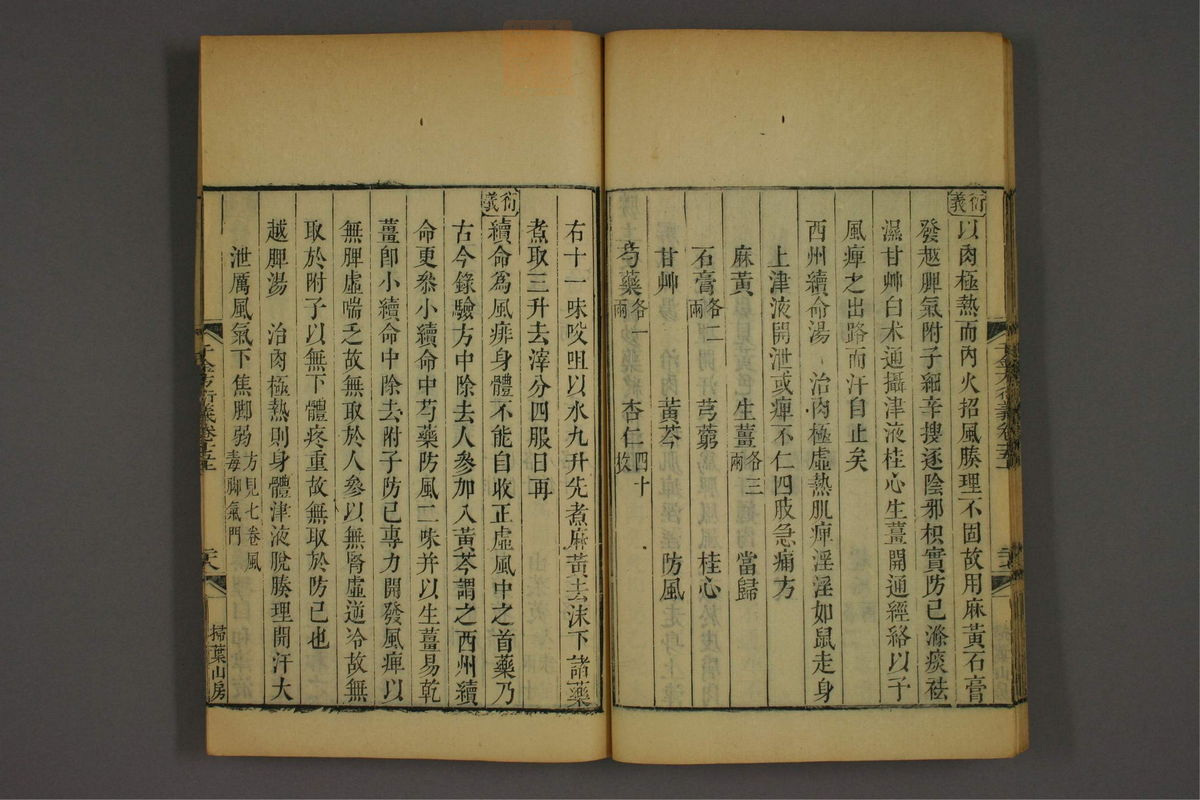 衍義以肉極熱而內火招風腠理不固故用麻黃石膏
發越脾氣附子細辛搜逐陰邪枳實防己滌痰祛
濕甘艸白朮通攝津液桂心生薑開通經絡以予
風痺之出路而汗自止矣
西州續命湯 治肉極虛熱肌痺淫淫如鼠走身
上津液開泄或痺不仁四肢急痛方
麻黃 生薑各三兩 當歸
石膏各二兩 芎藭 桂心
甘艸 黃芩 防風
芍藥各一兩 杏仁四十枚
右十一味㕮咀以水九升先煮麻黃去沫下諸藥
煮取三升去滓分四服日再
衍義續命爲風痱身體不能自收正虛風中之首藥乃
古今錄驗方中除去人參加入黃芩謂之西州續
命更叅小續命中芍藥防風二味并以生薑易乾
薑卽小續命中除去附子防己專力開發風痺以
無脾虛喘乏故無取於人參以無腎虛逆冷故無
取於附子以無下體疼重故無取於防己也
越脾湯 治肉極熱則身體津液脫腠理開汗大
泄厲風氣下焦脚弱方見七卷風毒脚氣門
千金方衍義卷十五上
掃葉山房